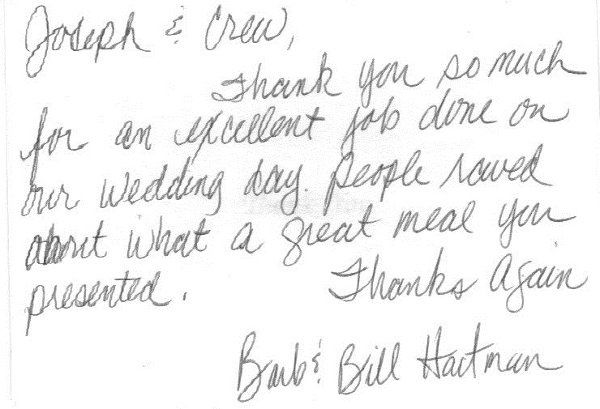 Joseph & Crew,
Thank you so much
for an excellent job done on
our wedding day. People raved
about what a great meal you
presented. Thanks Again
Barb & Bill Hartman